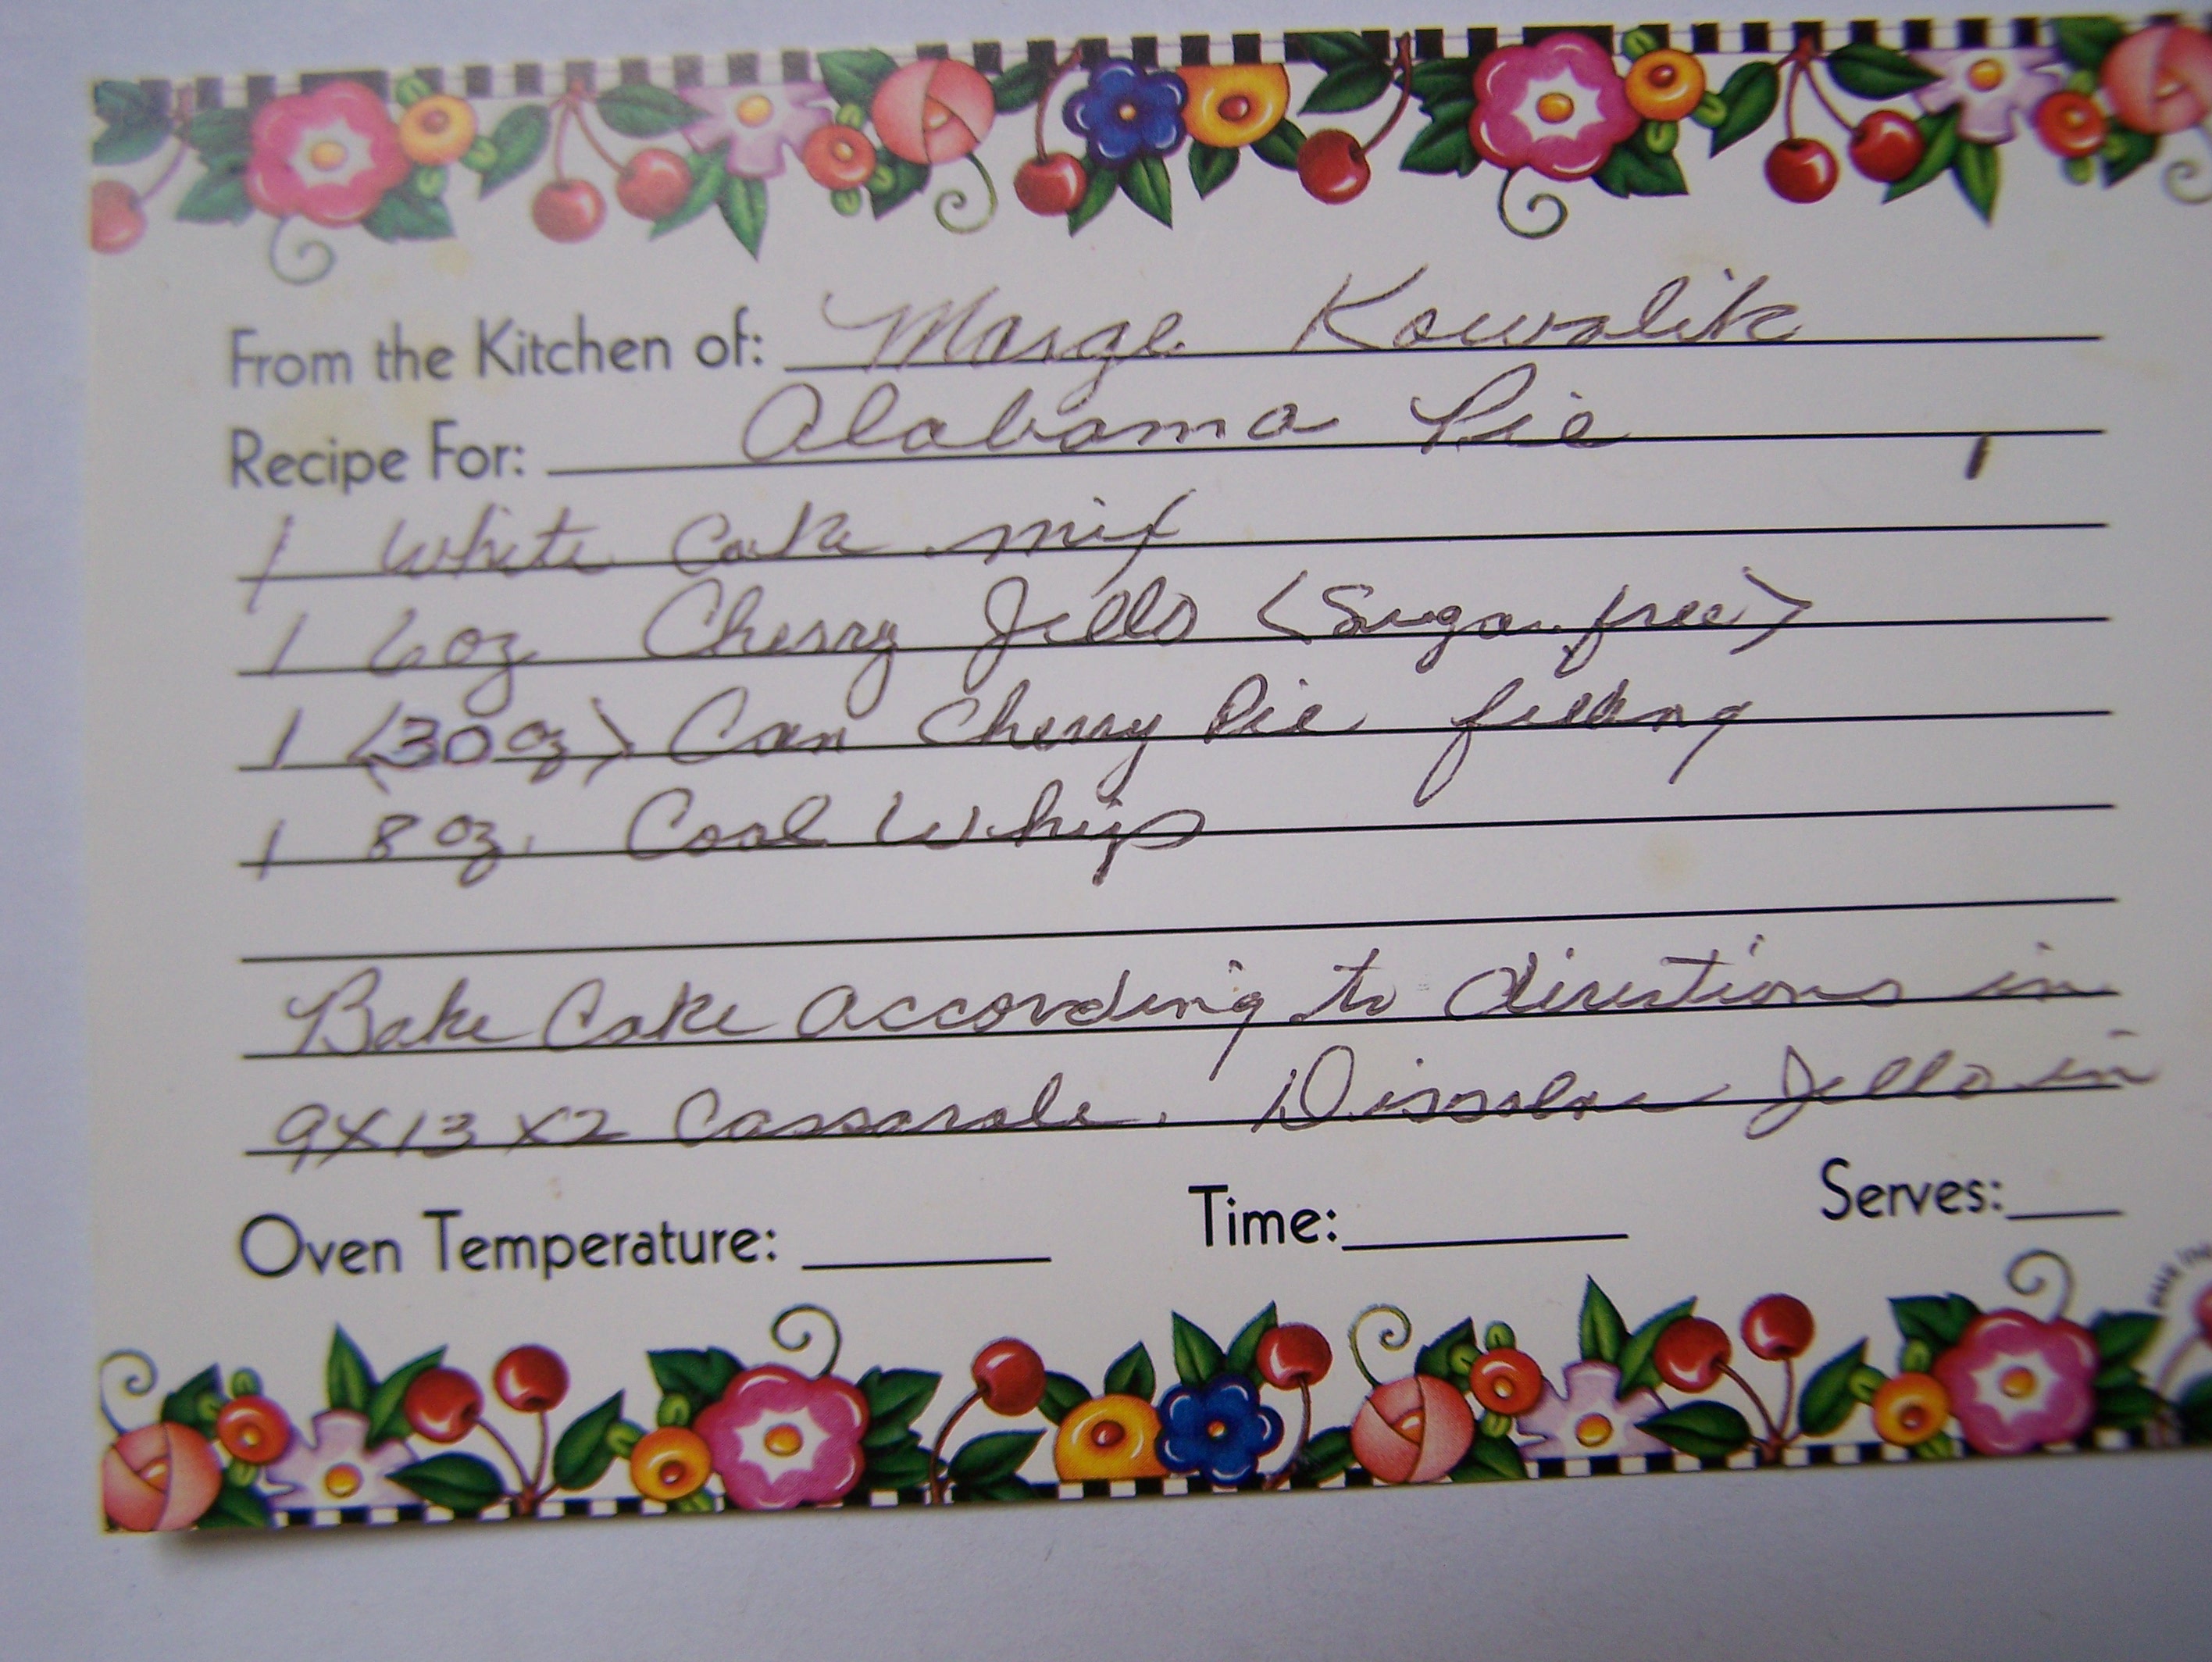 From the Kitchen of: Marge Kowalik
Recipe For: Alabama Pie
1 White Cake mix
1 6 oz Cherry Jello <Sugar free>
1 <30 oz> Can Cherry Pie filling
1 8 oz. Cool Whip
Bake Cake according to directions in
9X13X2 Cassarole. Dissolve Jello in
Oven Temperature: Time: Serves: